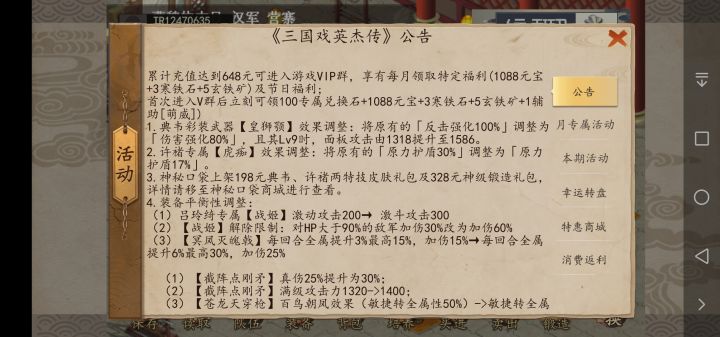 TR12470635 汉军 营寨
《三国戏英杰传》公告
累计充值达到648元可进入游戏VIP群，享有每月领取特定福利(1088元宝
+3寒铁石+5玄铁矿)及节日福利；
首次进入V群后立刻可领100专属兑换石+1088元宝+3寒铁石+5玄铁矿+1辅
助[萌威])
1.典韦彩装武器【皇狮颚】效果调整：将原有的「反击强化100%」调整为
「伤害强化80%」，且其Lv9时，面板攻击由1318提升至1586。
2.许褚专属【虎痴】效果调整：将原有的「原力护盾30%」调整为「原力
护盾17%」。
3.神秘口袋上架198元典韦、许褚两特技皮肤礼包及328元神级锻造礼包，
详情请移至神秘口袋商城进行查看。
4.装备平衡性调整：
（1）吕玲绮专属【战姬】激动攻击200→ 激斗攻击300
（2）【战姬】解除限制：对HP大于90%的敌军加伤30%改为加伤60%
（3）【冥凤灭魄戟】每回合全属提升3%最高15%，加伤15%→每回合全属
提升6%最高30%，加伤25%
（1）【截阵点刚矛】真伤25%提升为30%；
（2）【截阵点刚矛】满级攻击力1320->1400；
（3）【苍龙天穿枪】百鸟朝凤效果（敏捷转全属性50%）->敏捷转全属
活动
公告
月专属活动
本期活动
幸运转盘
特惠商城
消费返利
保存 读取 队伍 装备 背包 培养 卖出 锻造